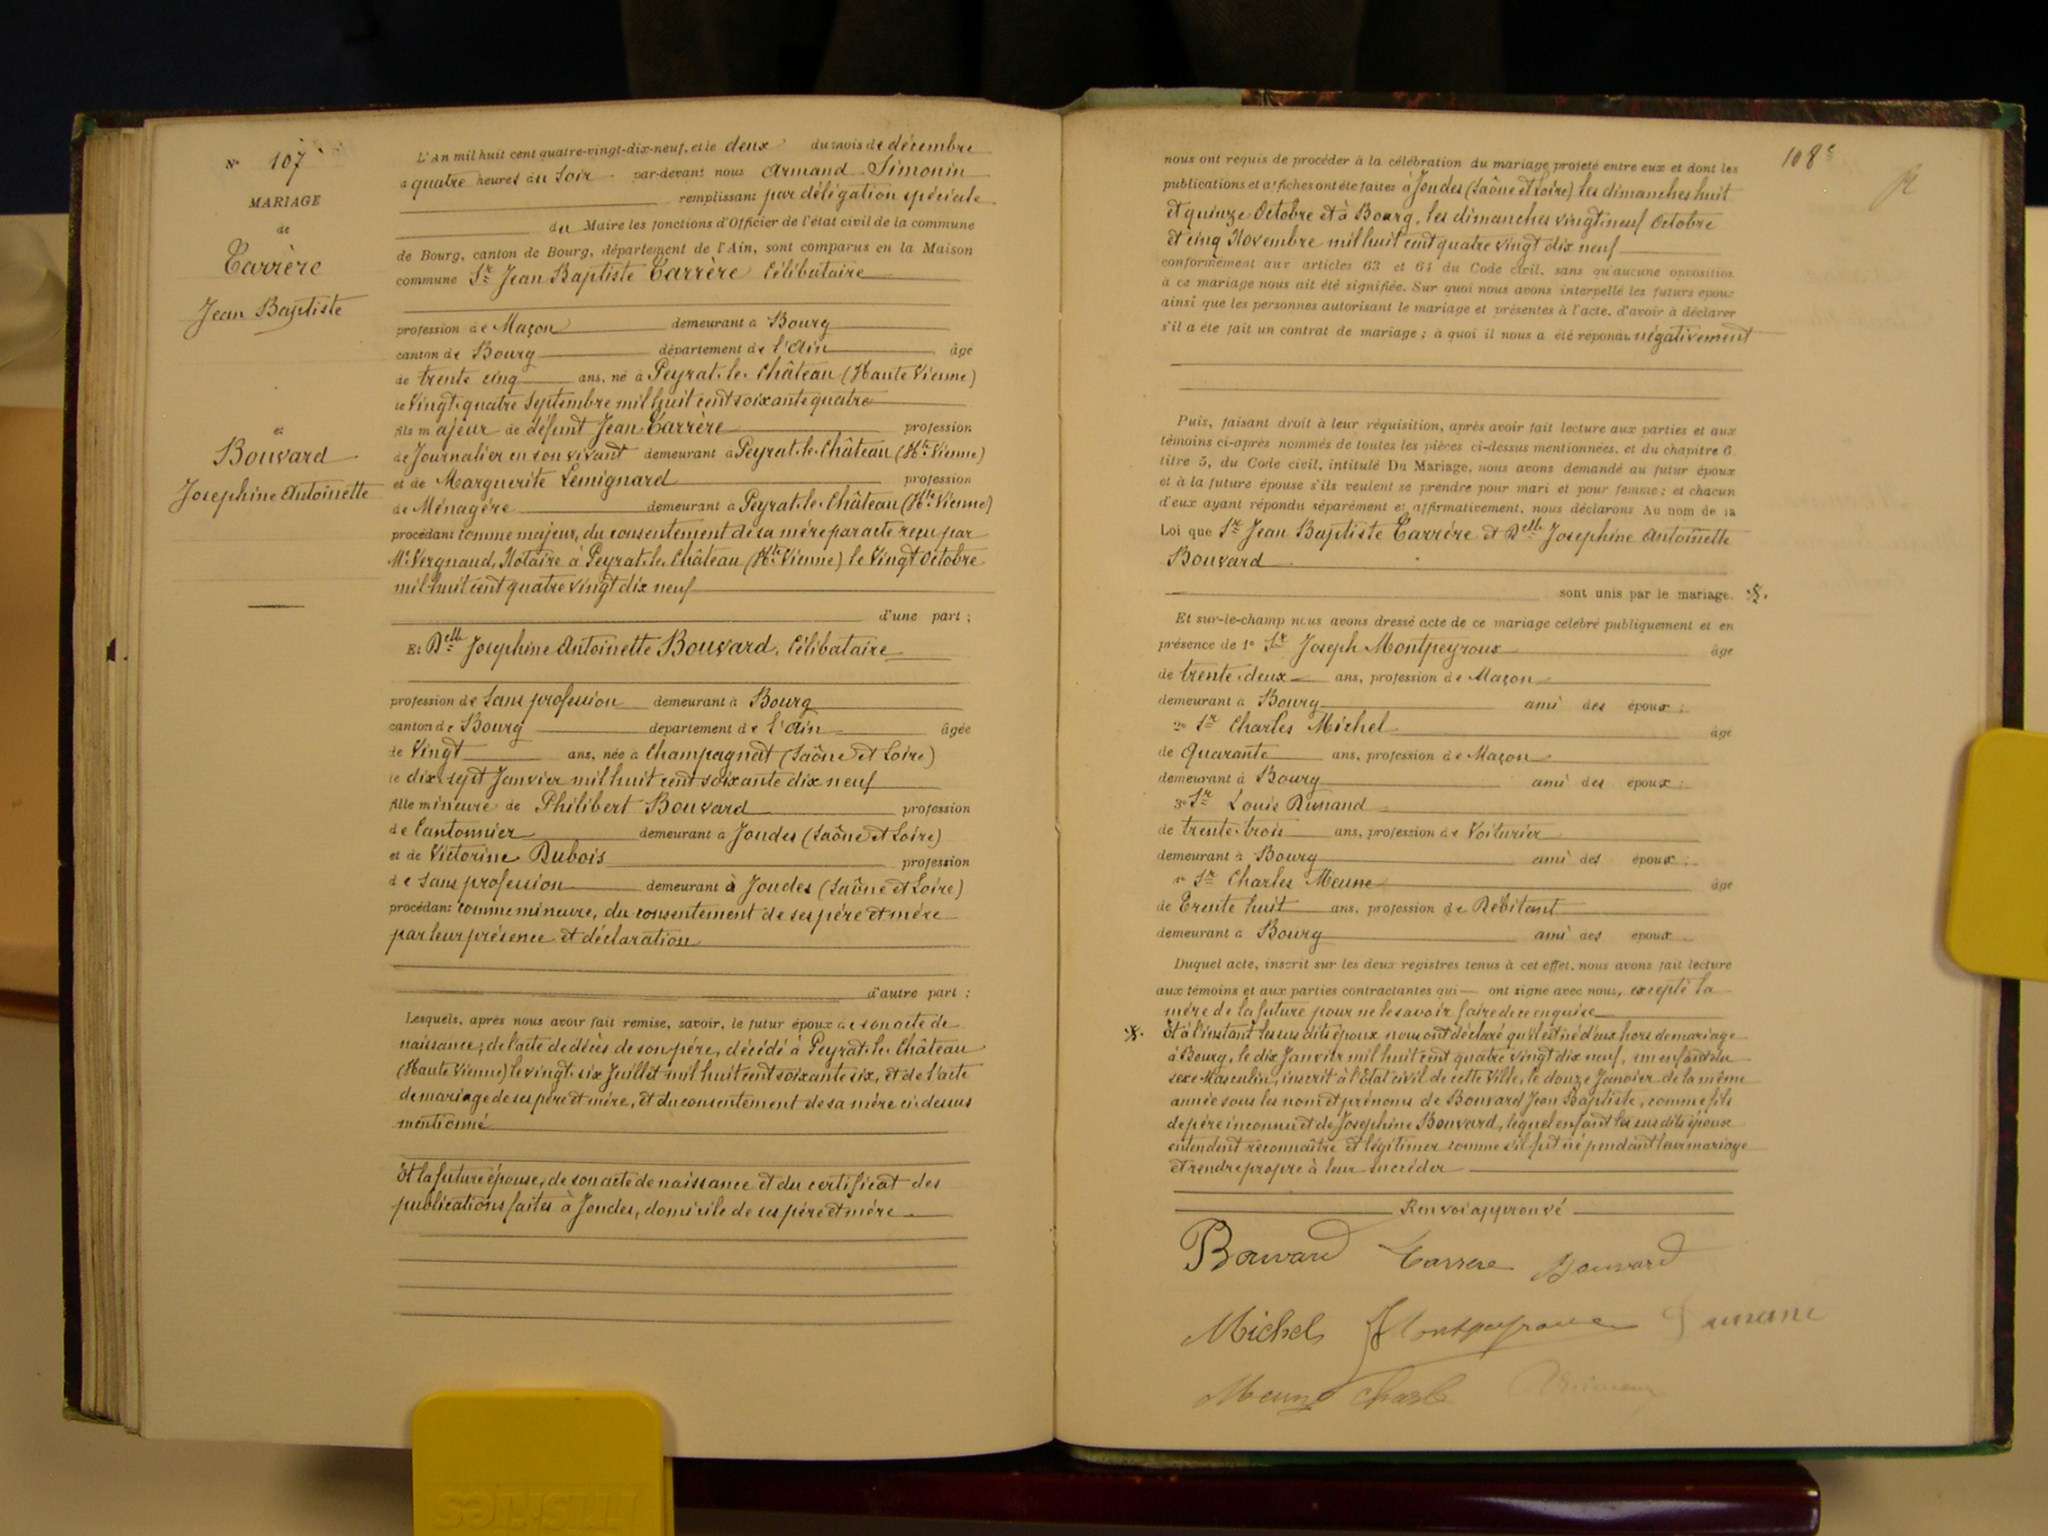 N° 107
MARIAGE
de
Carrère
Jean Baptiste
et
Bouvard
Josephine Antoinette
L'An mil huit cent quatre-vingt-dix-neuf, et le deux du mois de décembre
à quatre heures du soir par-devant nous Armand Simonin
remplissant par délégation spéciale
du Maire les fonctions d'Officier de l'état civil de la commune
de Bourg, canton de Bourg, département de l'Ain, sont comparus en la Maison
commune Sr Jean Baptiste Carrère Célibataire
profession de Maçon demeurant à Bourg
canton de Bourg département de l'Ain âgé
de trente cinq ans, né à Peyrat-le-Château (Haute Vienne)
le Vingt-quatre Septembre mil huit cent soixante quatre
fils majeur de défunt Jean Carrère profession
de Journalier en son vivant demeurant à Peyrat-le-Château (Hte Vienne)
et de Marguerite Lemignard profession
de Ménagère demeurant à Peyrat-le-Château (Hte Vienne)
procédant comme majeur, du consentement de sa mère par acte reçu par
Me Vergnaud, Notaire à Peyrat-le-Château (Hte Vienne) le Vingt Octobre
mil-huit cent quatre vingt dix neuf
d'une part ;
Et Delle Josephine Antoinette Bouvard, Célibataire
profession de Sans profession demeurant à Bourg
canton de Bourg département de l'Ain âgée
de Vingt ans, née à Champagnat (Saône et Loire)
le dix-sept Janvier mil huit cent soixante dix neuf
fille mineure de Philibert Bouvard profession
de Cantonnier demeurant à Joudes (Saône et Loire)
et de Victorine Dubois profession
de Sans profession demeurant à Joudes (Saône et Loire)
procédant comme mineure, du consentement de ses père et mère
par leur présence et déclaration
d'autre part ;
Lesquels, après nous avoir fait remise, savoir, le futur époux de son acte de
naissance ; de l'acte de décès de son père, décédé à Peyrat-le-Château
(Haute Vienne) le vingt-six Juillet mil huit cent soixante six, et de l'acte
de mariage de ses père et mère, et du consentement de sa mère ci-dessus
mentionné
Et la future épouse, de son acte de naissance et du certificat des
publications faites à Joudes, domicile de ses père et mère.
108e
nous ont requis de procéder à la célébration du mariage projeté entre eux et dont les
publications et affiches ont été faites à Joudes (Saône et Loire) les dimanches huit
et quinze Octobre et à Bourg, les dimanches vingt neuf Octobre
et cinq Novembre mil huit cent quatre vingt dix neuf
conformément aux articles 63 et 64 du Code civil, sans qu'aucune opposition
à ce mariage nous ait été signifiée. Sur quoi nous avons interpellé les futurs époux
ainsi que les personnes autorisant le mariage et présentes à l'acte, d'avoir à déclarer
s'il a été fait un contrat de mariage ; à quoi il nous a été répondu négativement
Puis, faisant droit à leur réquisition, après avoir fait lecture aux parties et aux
témoins ci-après nommés de toutes les pièces ci-dessus mentionnées, et du chapitre 6
titre 5, du Code civil, intitulé Du Mariage, nous avons demandé au futur époux
et à la future épouse s'ils veulent se prendre pour mari et pour femme ; et chacun
d'eux ayant répondu séparément et affirmativement, nous déclarons Au nom de la
Loi que Sr Jean Baptiste Carrère et Delle Josephine Antoinette
Bouvard
sont unis par le mariage.
Et sur-le-champ nous avons dressé acte de ce mariage célébré publiquement et en
présence de 1° Sr Joseph Montpeyroux âgé
de trente-deux ans, profession de Maçon
demeurant à Bourg ami des époux ;
2° Sr Charles Michel âgé
de Quarante ans, profession de Maçon
demeurant à Bourg ami des époux ;
3° Sr Louis Dunand
de trente-trois ans, profession de Voiturier
demeurant à Bourg ami des époux ;
Sr Charles Meune âgé
de Trente huit ans, profession de Débitant
demeurant à Bourg ami des époux
Duquel acte, inscrit sur les deux registres tenus à cet effet, nous avons fait lecture
aux témoins et aux parties contractantes qui ont signé avec nous, excepté la
mère de la future pour ne le savoir faire de ce enquise
Et à l'instant les susdits époux nous ont déclaré qu'il est né d'eux hors de mariage
à Bourg, le dix Janvier mil huit cent quatre vingt dix neuf, un enfant du
sexe Masculin, inscrit à l'Etat civil de cette Ville, le douze Janvier de la même
année sous les nom et prénoms de Bouvard Jean Baptiste, comme fils
de père inconnu et de Josephine Bouvard, lequel enfant les susdits époux
entendent reconnaître et légitimer comme s'il fut né pendant leur mariage
et rendre propre à leur succéder
Renvoi approuvé
Bouvard Carrere Bouvard
Michel Montpeyroux Dunand
Meune Charle